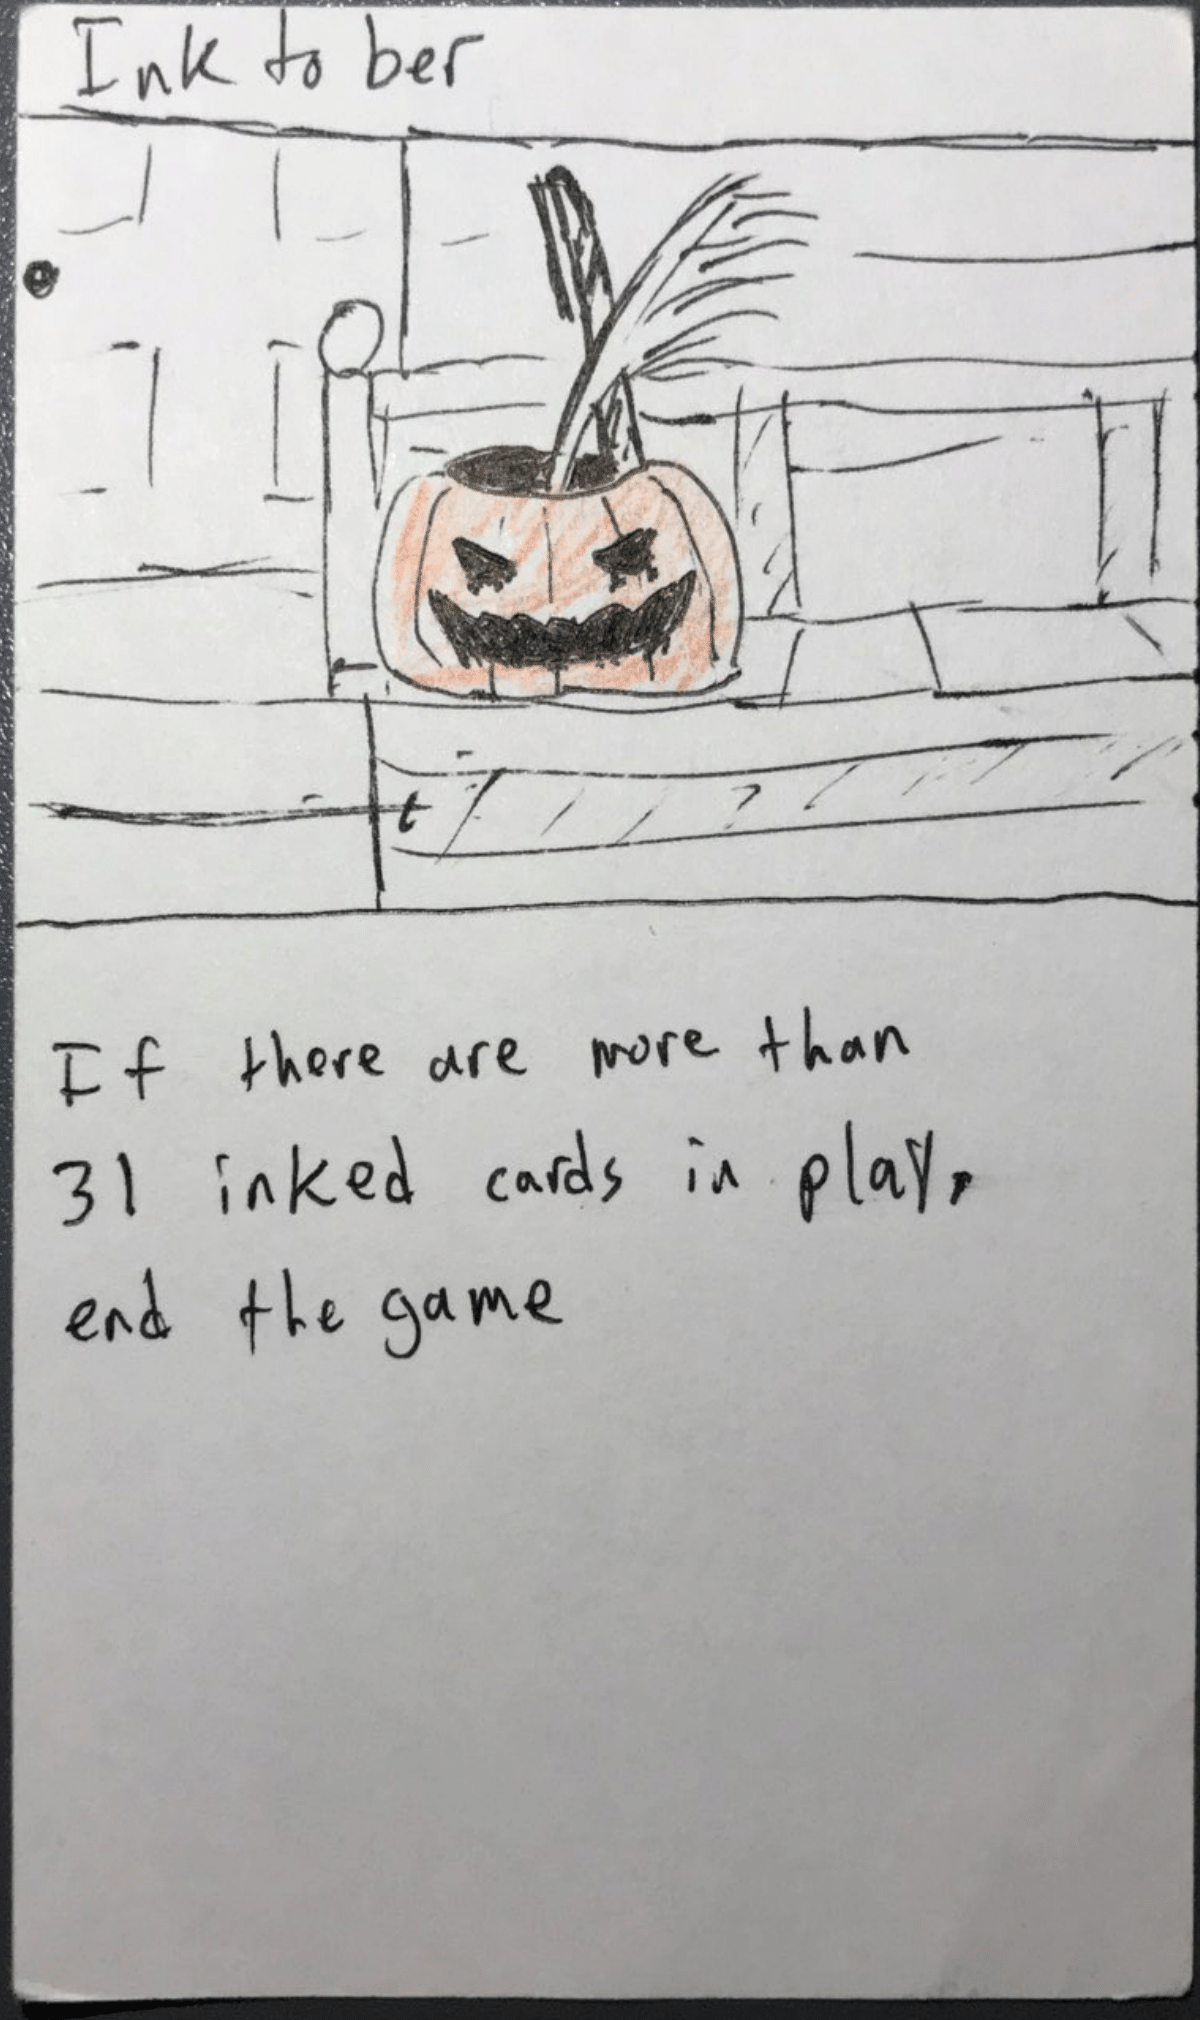 Inktober
If there are more than
31 inked cards in play,
end the game